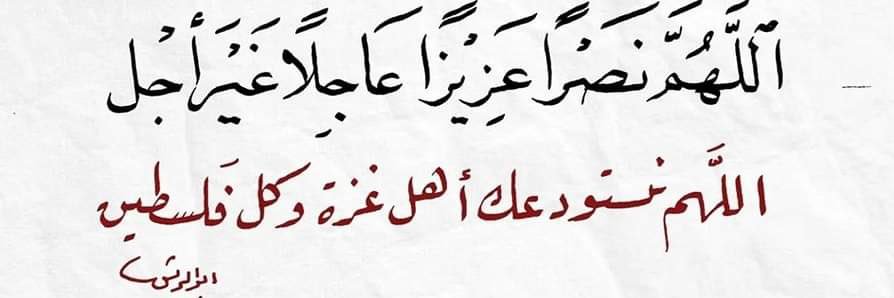 ٱللَّهُمَّ نَصْرًا عَزِيْزًا عَاجِلًا غَيْرَ أَجْل
اللَّهم نستودعك أهل غزة وكل فَلسطين